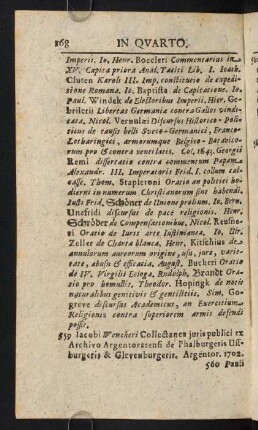 868 IN QVARTO.
Imperii. Io. Henr. Boecleri Commentarius in
XIV. Capita priora Anal. Taciti Lib. I. Ioach.
Cluten Karoli III. Imp. constitutio de expedi-
tione Romana. Io. Baptista de Capitatione. Io.
Paul. Windek de Electoribus Imperii. Hier. Ge-
brilerii Libertas Germania contra Gallos vindi-
cata. Nicol. Vernulæi Discursus Historico-Poli-
ticus de causis belli Sveco-Germanici, Franco-
Lotharingici, armorumque Belgico-Batavico-
rum pro & contra ventilatis. Col. 164. Georgii
Remi dissertatio contra commentum Papam
Alexandr. III. Imperatoris Frid. I. collum cal-
casse. Thom. Stapletoni Oratio an politici ho-
dierni in numerum Christianorum sint habendi.
Iusti Frid. Schöner de Unione prolium. Io. Bern.
Unefridi discursus de pace religionis. Henr.
Schröder de Compensationibus, Nicol. Reusne-
ri Oratio de Iuris arte Iustinianea. Io. Ulr.
Zeller de Charta blanca. Henr. Kitschius de
annulorum aureorum origine, usu, jure, varie-
tate, abusu & efficacia, august. Bucheri Oratio
de IV. Virgilii Ecloga, Rudolph. Brandt Ora-
tio pro bomullis. Theodor. Hopingk de notis
naturalibus genitivis & gentilitiis, Sim. Go-
greve discursus Academicus, an Exercitium
Religionis contra superiorem armis defendi
possit.
559 Iacobi Wencheri Collectanea juris publici ex
Archivo Argentoratensi de Phalburgeris Us-
burgeris & Glevenburgeris. Argentor. 1702.
560 Pauli